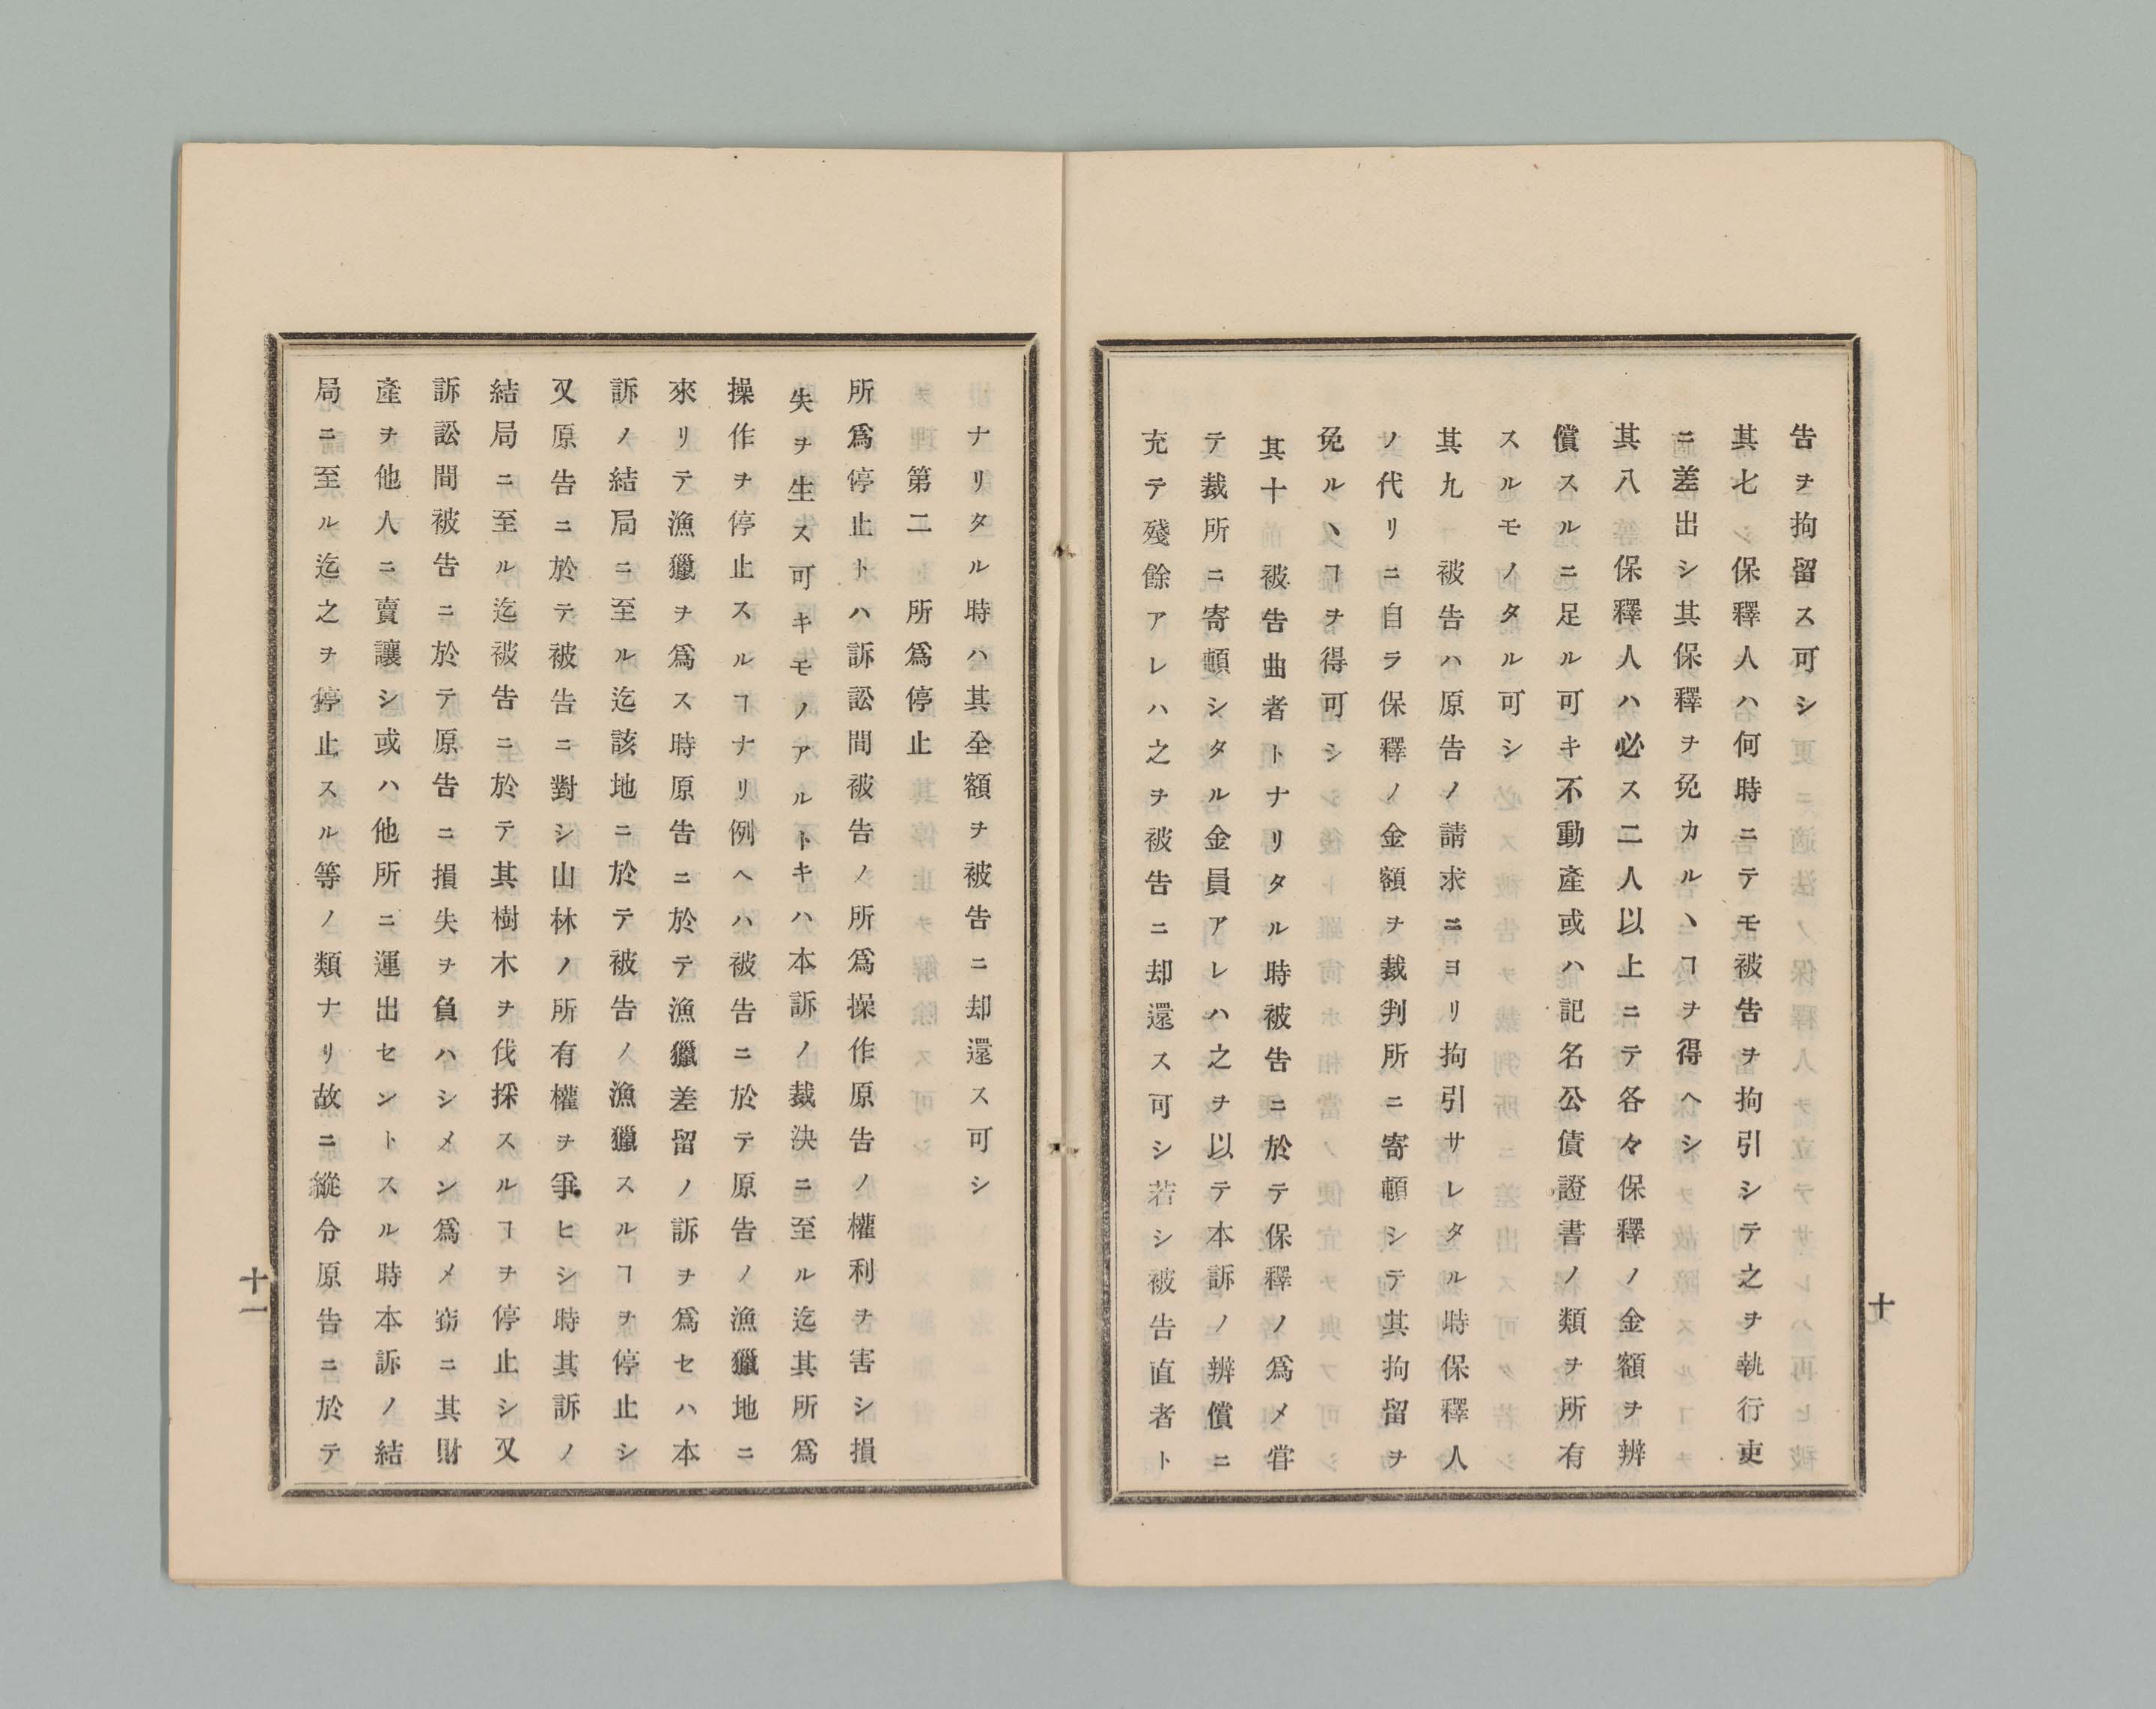 告ヲ拘留ス可シ
其七　保釋人ハ何時ニテモ被告ヲ拘引シテ之ヲ執行吏
ニ差出シ其保釋ヲ免カルヽヿヲ得ヘシ
其八　保釋人ハ必ス二人以上ニテ各々保釋ノ金額ヲ辨
償スルニ足ル可キ不動產或ハ記名公債證書ノ類ヲ所有
スルモノタル可シ
其九　被告ハ原告ノ請求ニヨリ拘引サレタル時保釋人
ノ代リニ自ラ保釋ノ金額ヲ裁判所ニ寄頓シテ其拘留ヲ
免ルヽヿヲ得可シ
其十　被告曲者トナリタル時被告ニ於テ保釋ノ爲メ甞
テ裁所ニ寄頓シタル金員アレハ之ヲ以テ本訴ノ辨償ニ
充テ殘餘アレハ之ヲ被告ニ却還ス可シ若シ被告直者ト
十
ナリタル時ハ其全額ヲ被告ニ却還ス可シ
第二　所爲停止
所爲停止トハ訴訟間被告ノ所爲操作原告ノ權利ヲ害シ損
失ヲ生ス可キモノアルトキハ本訴ノ裁決ニ至ル迄其所爲
操作ヲ停止スルヿナリ例ヘハ被告ニ於テ原告ノ漁獵地ニ
來リテ漁獵ヲ爲ス時原告ニ於テ漁獵差留ノ訴ヲ爲セハ本
訴ノ結局ニ至ル迄該地ニ於テ被告ノ漁獵スルヿヲ停止シ
又原告ニ於テ被告ニ對シ山林ノ所有權ヲ爭ヒシ時其訴ノ
結局ニ至ル迄被告ニ於テ其樹木ヲ伐採スルヿヲ停止シ又
訴訟間被告ニ於テ原告ニ損失ヲ負ハシメン爲メ窃ニ其財
產ヲ他人ニ賣讓シ或ハ他所ニ運出セントスル時本訴ノ結
局ニ至ル迄之ヲ停止スル等ノ類ナリ故ニ縱令原告ニ於テ
十一